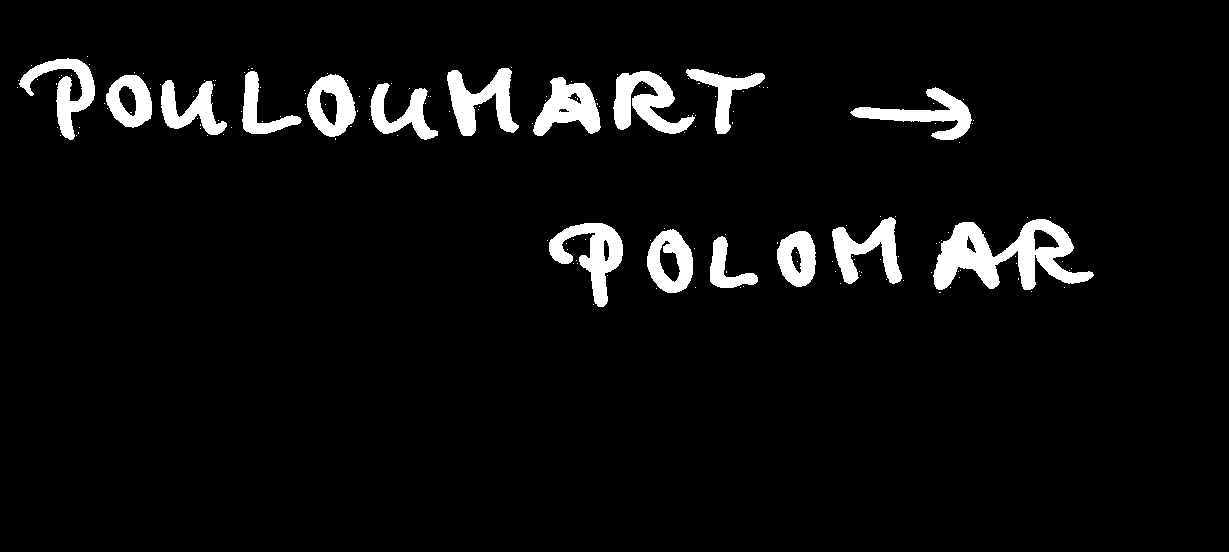 POULOUMART →
POLOMAR